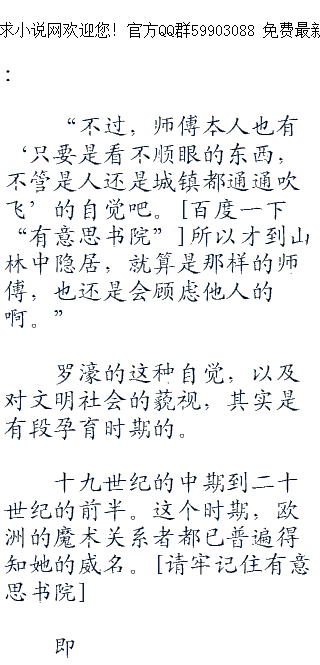 求小说网欢迎您！官方QQ群59903088 免费最新
：
“不过，师傅本人也有
‘只要是看不顺眼的东西，
不管是人还是城镇都通通吹
飞’的自觉吧。[百度一下
“有意思书院”]所以才到山
林中隐居，就算是那样的师
傅，也还是会顾虑他人的
啊。”
罗濠的这种自觉，以及
对文明社会的藐视，其实是
有段孕育时期的。
十九世纪的中期到二十
世纪的前半。这个时期，欧
洲的魔术关系者都已普遍得
知她的威名。[请牢记住有意
思书院]
即